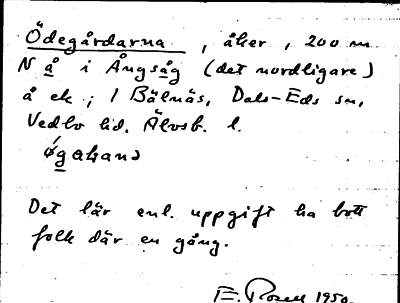 Ödegårdarna, åker, 200 m
N å i Ångsåg (det nordligare)
å ek; / Bälnäs, Dals-Eds sn,
Vedbo hd. Älvsb. l.
Det lär enl. uppgift ha bott
folk där en gång.
E. Rosell 1950